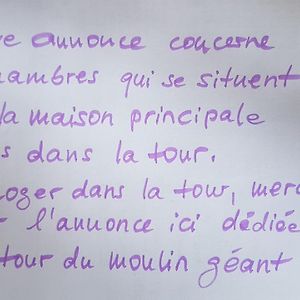 annonce concerne
qui se situent
la maison principale
dans la tour.
dans la tour,
l'annonce ici dédiée
tour du moulin géant